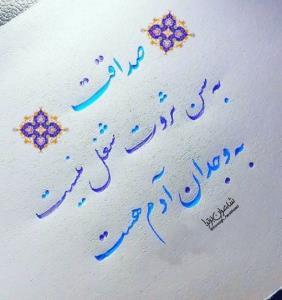 صداقت
به سن ثروت شغل نیست
به وجدان آدم هست